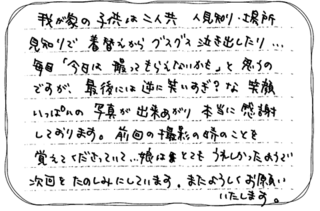 我が家の子供は二人共 人見知り・場所
見知りで 着替えから グズグズ 泣き出したり…
毎回「今日は 撮ってもらえないかも」と 思うの
ですが、最後には 逆に 笑いすぎ?な 笑顔
いっぱいの 写真が 出来あがり 本当に 感謝
しております。前回の撮影の時のことを
覚えてくださっていて…娘は とても うれしかったようで
次回を たのしみにしています。またよろしくお願い
いたします。